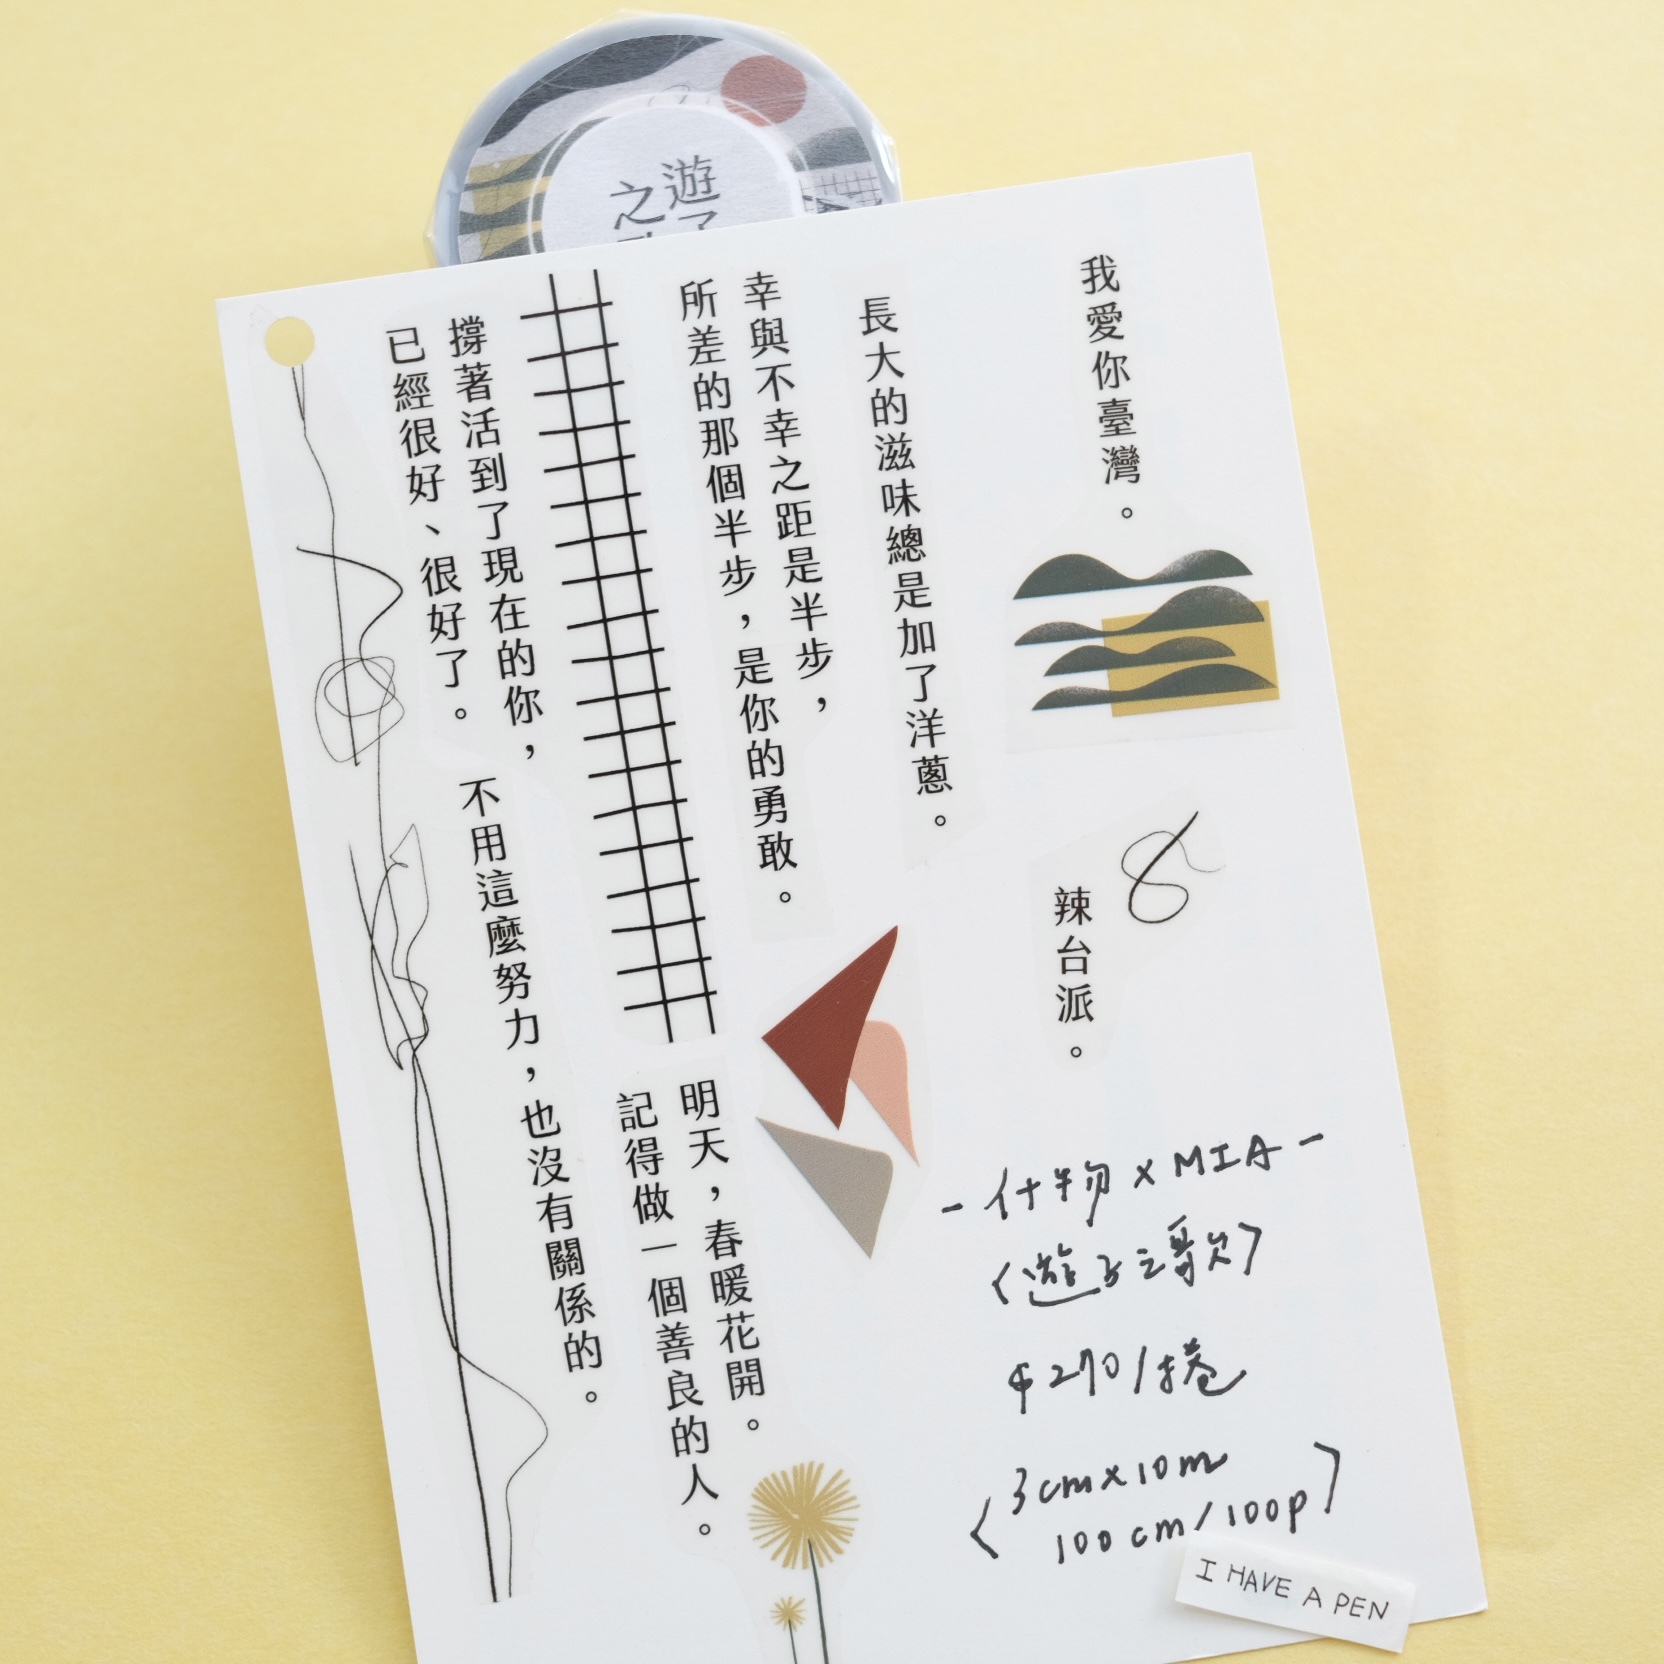 遊子
之
我愛你臺灣。
長大的滋味總是加了洋蔥。
幸與不幸之距是半步，
所差的那個半步，是你的勇敢。
撐著活到了現在的你，
已經很好、很好了。
不用這麼努力，也沒有關係的。
辣台派。
明天，春暖花開。
記得做一個善良的人。
- 什物 x MIA -
〈遊子之歌〉
$270/捲
〈3cmx10m
100cm/100p〉
I HAVE A PEN